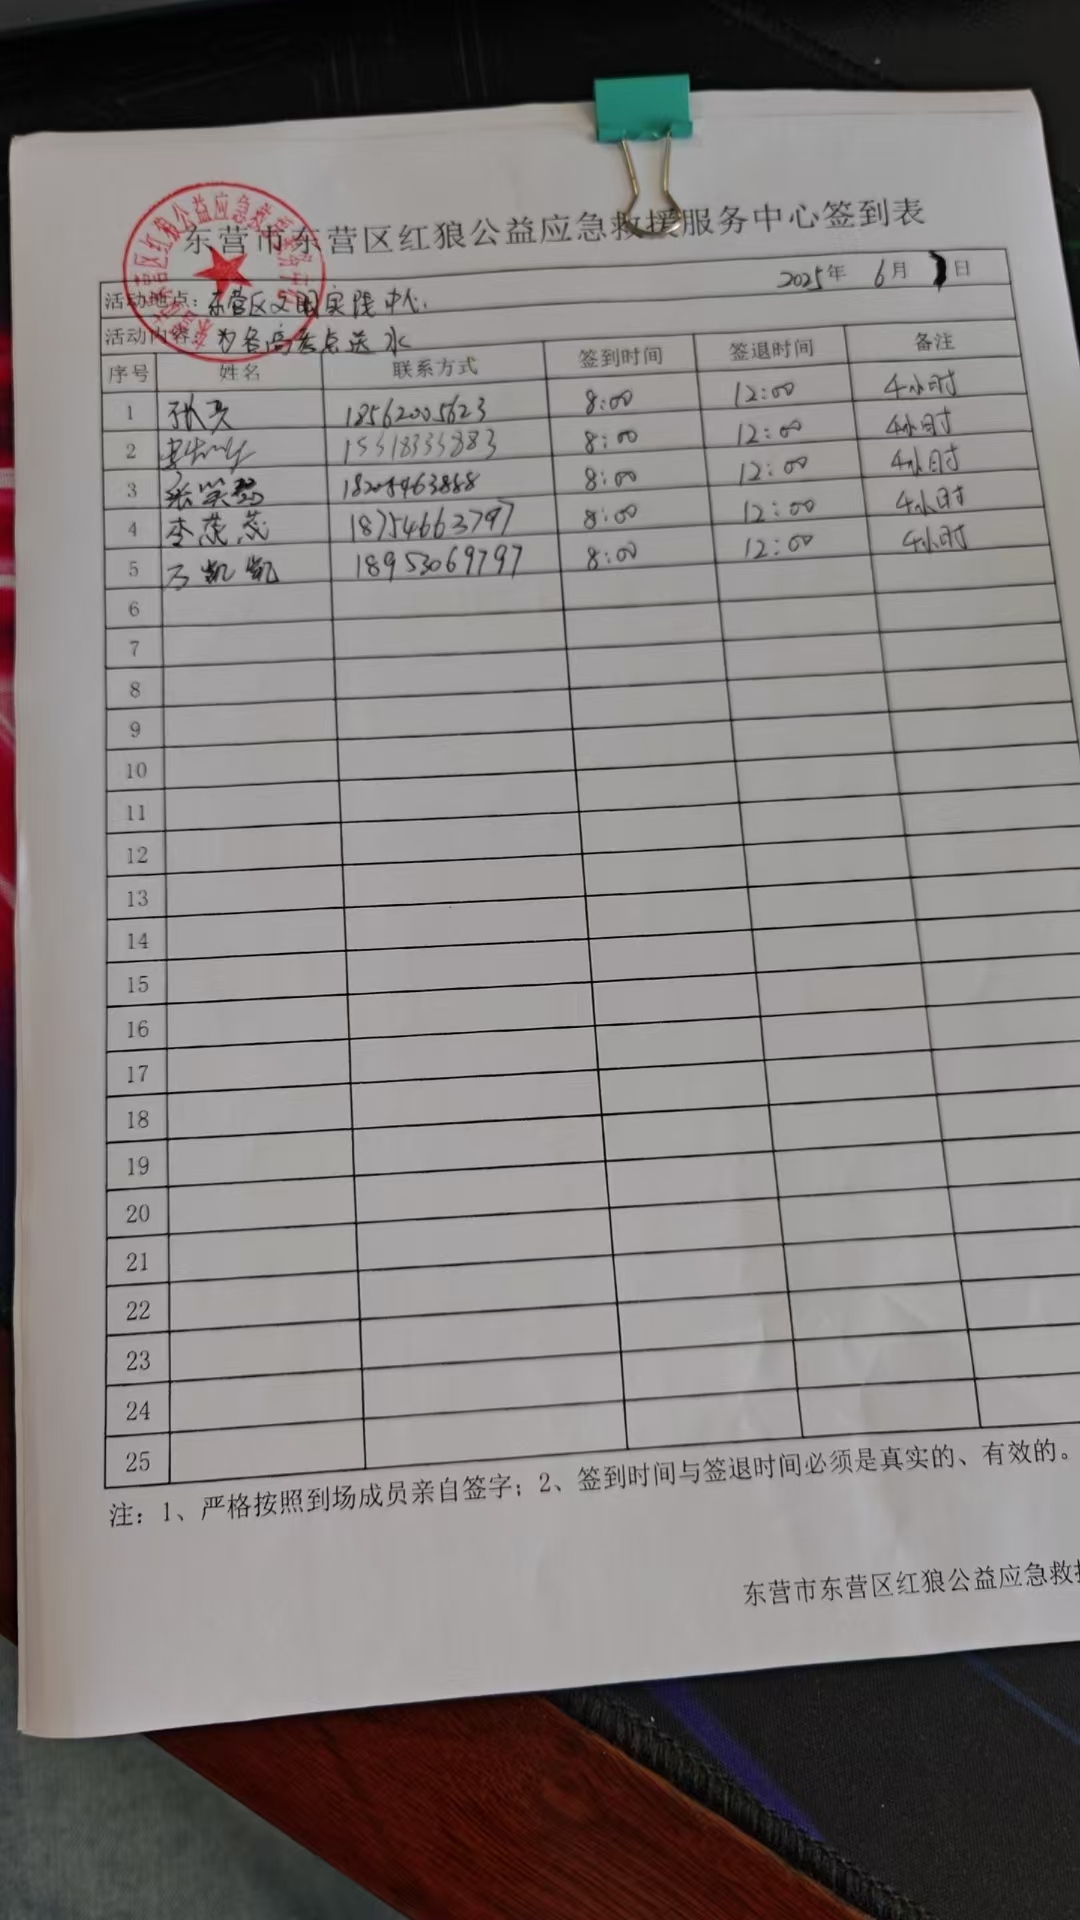 东营市东营区红狼公益应急救援服务中心签到表
2025年 6月 日
活动地点：东营区文明实践中心.
活动内容：为各高考点送水
序号 姓名 联系方式 签到时间 签退时间 备注
1 张 18562005623 8:00 12:00 4小时
2 8:00 12:00 4小时
3 张笑 18205463888 8:00 12:00 4小时
4 李蕊蕊 18754663797 8:00 12:00 4小时
5 万凯凯 18953069797 8:00 12:00 4小时
6
7
8
9
10
11
12
13
14
15
16
17
18
19
20
21
22
23
24
25
注：1、严格按照到场成员亲自签字；2、签到时间与签退时间必须是真实的、有效的。
东营市东营区红狼公益应急救